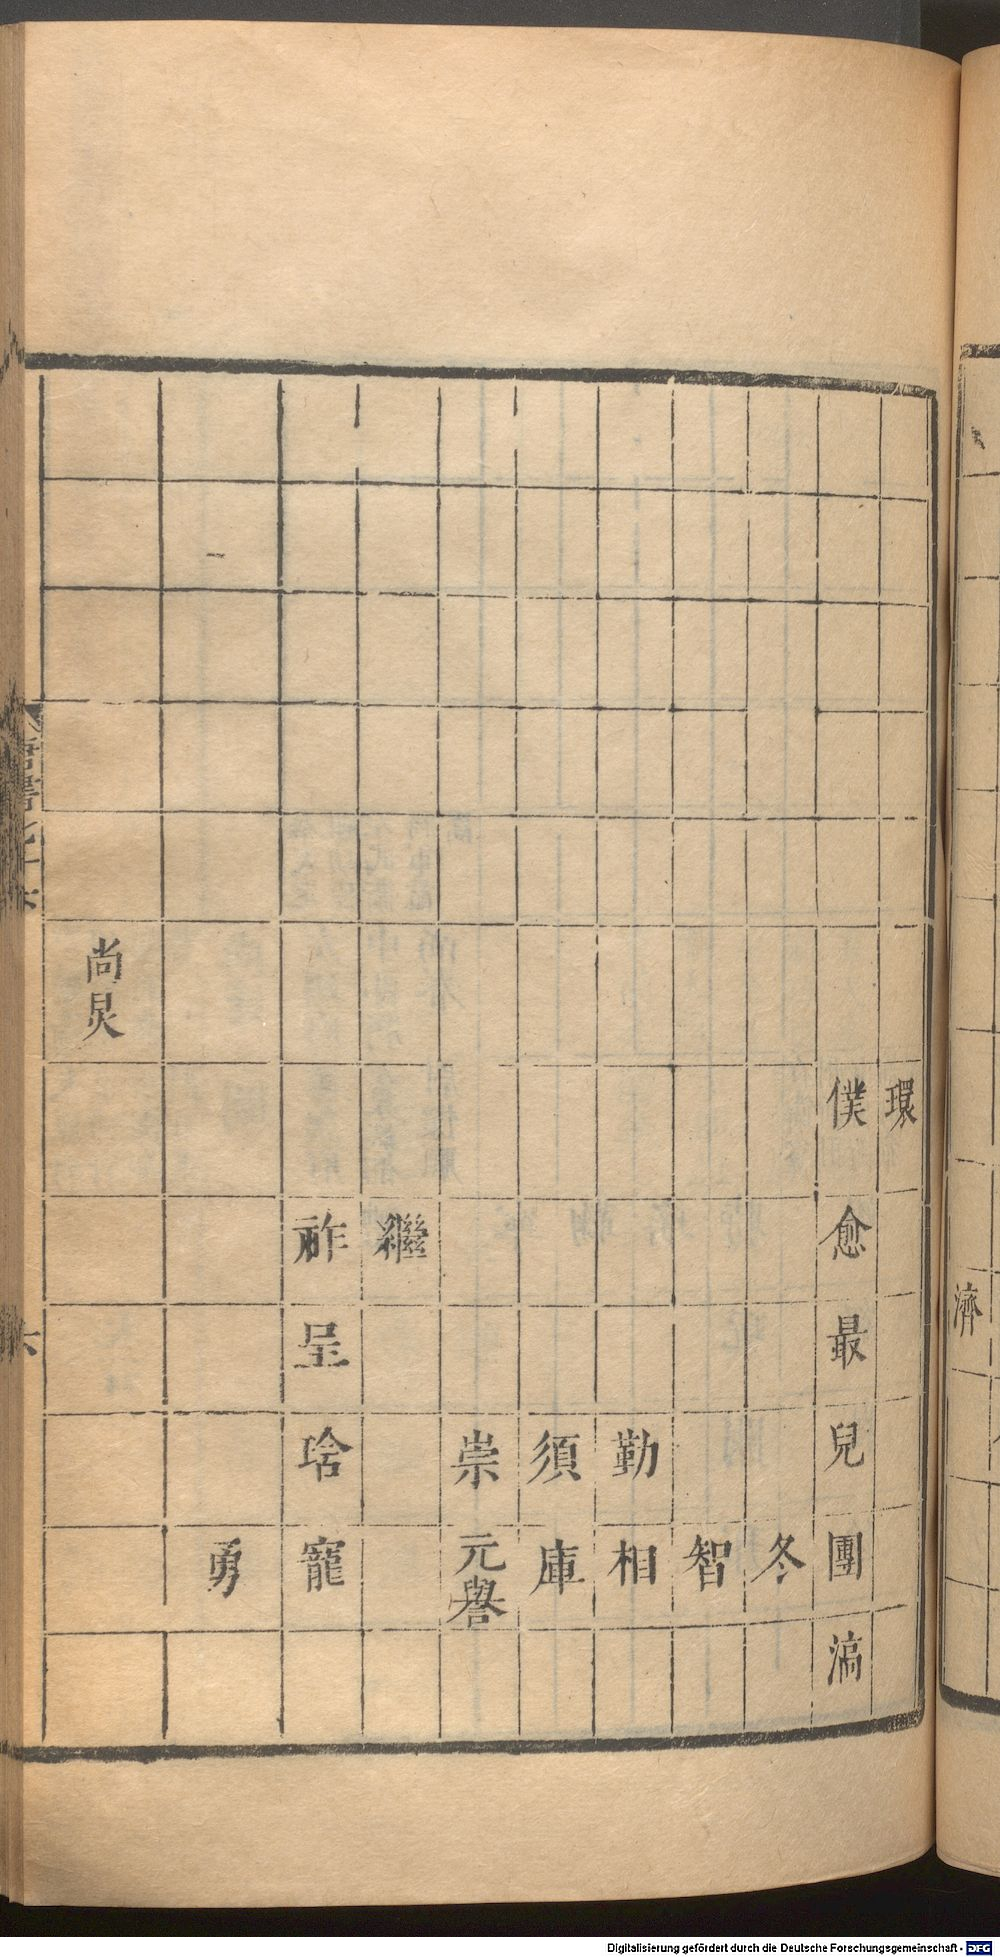 環
僕
愈
最
兒
團
滈
冬
智
勤
相
須
庫
崇
元譽
繼
祚
呈
琀
寵
勇
尚炅
唐書七十
六
濟
Digitalisierung gefördert durch die Deutsche Forschungsgemeinschaft - DFG